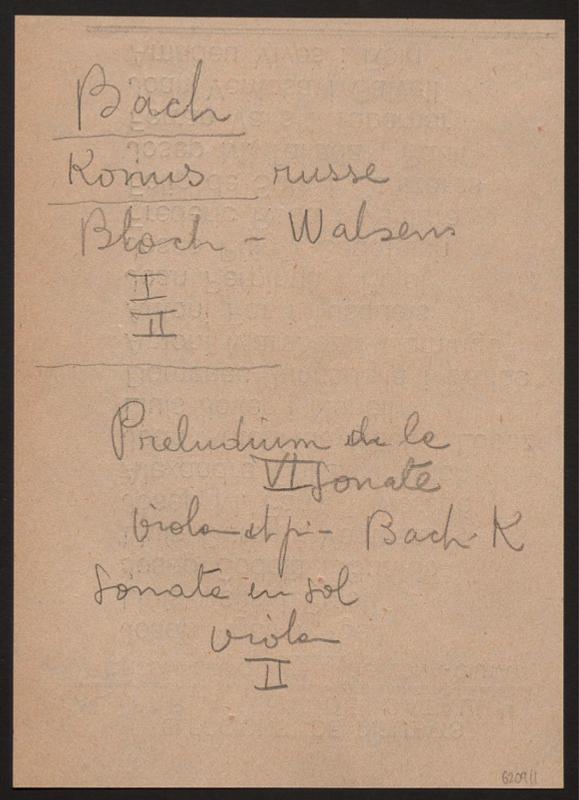 Bach
Konus russe
Bloch - Walsens
I
II
Preludium de la
VI Sonate
viola et pi - Bach - K
Sonate en sol
viola
II
6209/1